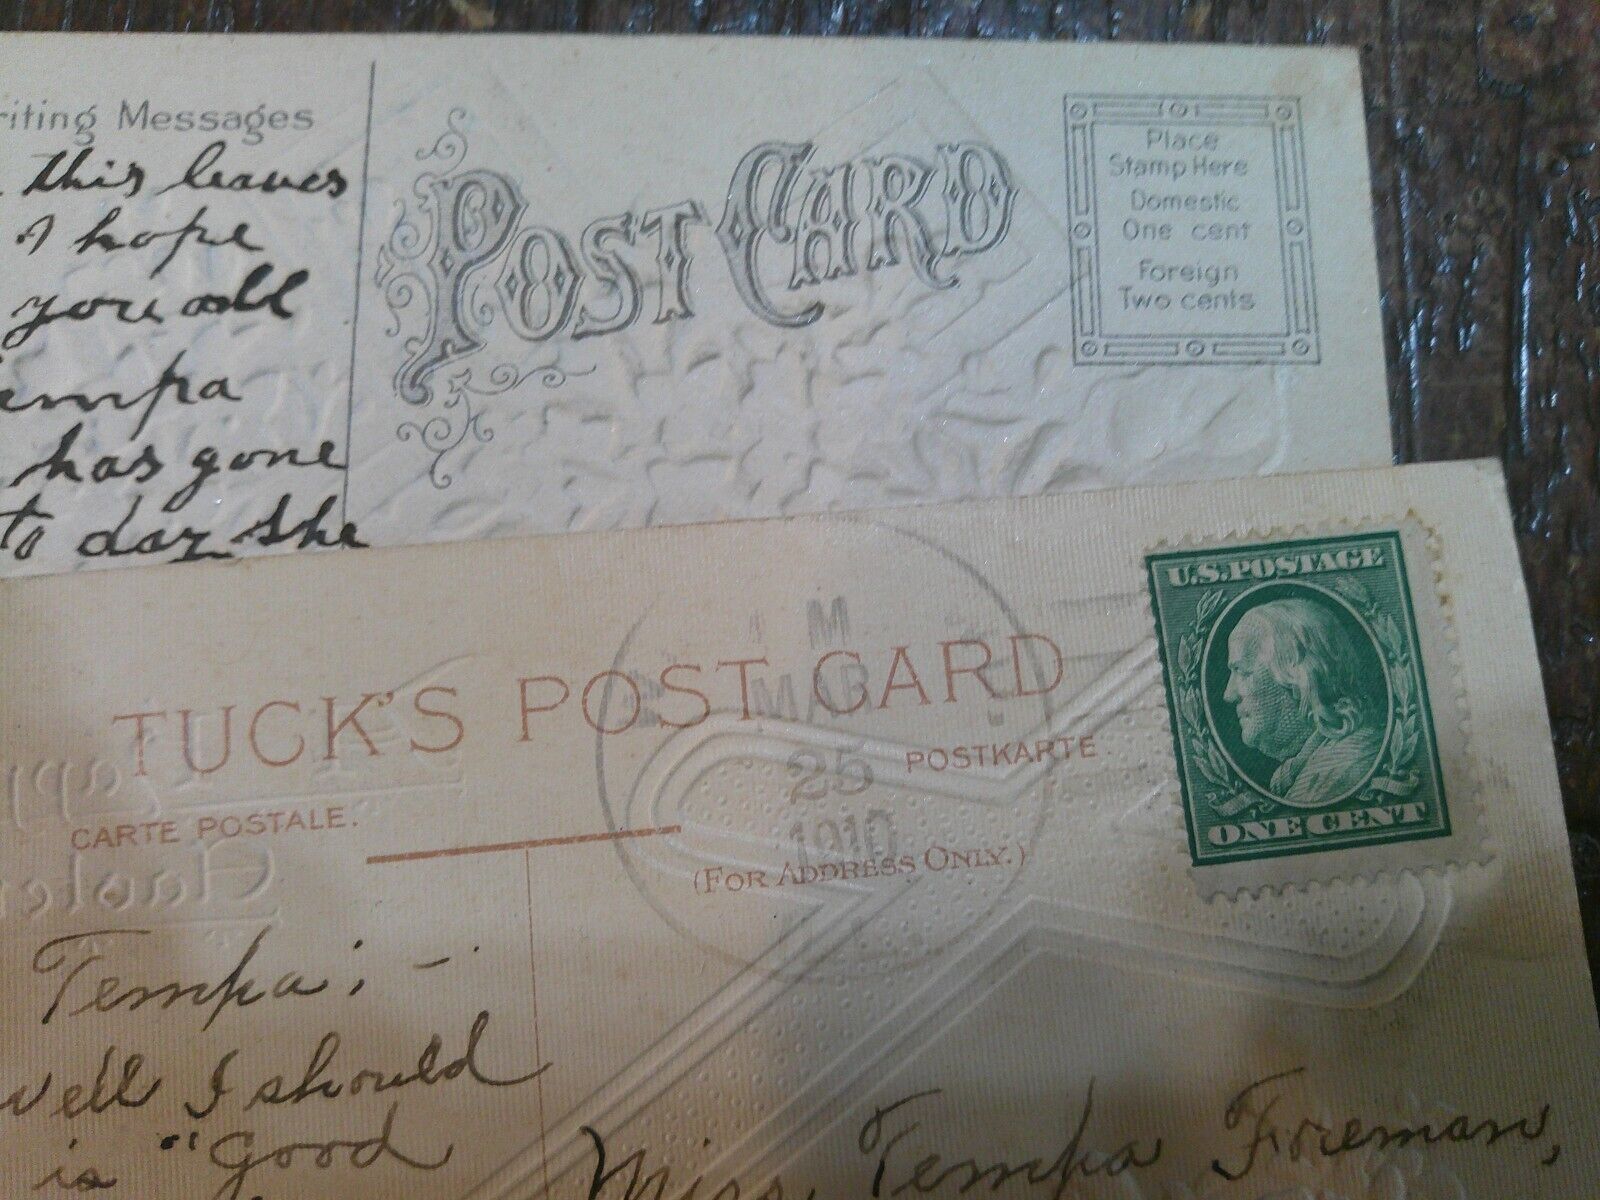 riting Messages
this leaves
I hope
you all
empa
has gone
to day she
POST CARD
Place
Stamp Here
Domestic
One cent
Foreign
Two cents
TUCK'S POST CARD
CARTE POSTALE.
POSTKARTE
(FOR ADDRESS ONLY.)
M
MAR
25
1910
U.S. POSTAGE
ONE CENT
Tempa; -
well I should
is "Good
Miss Tempa Foreman,